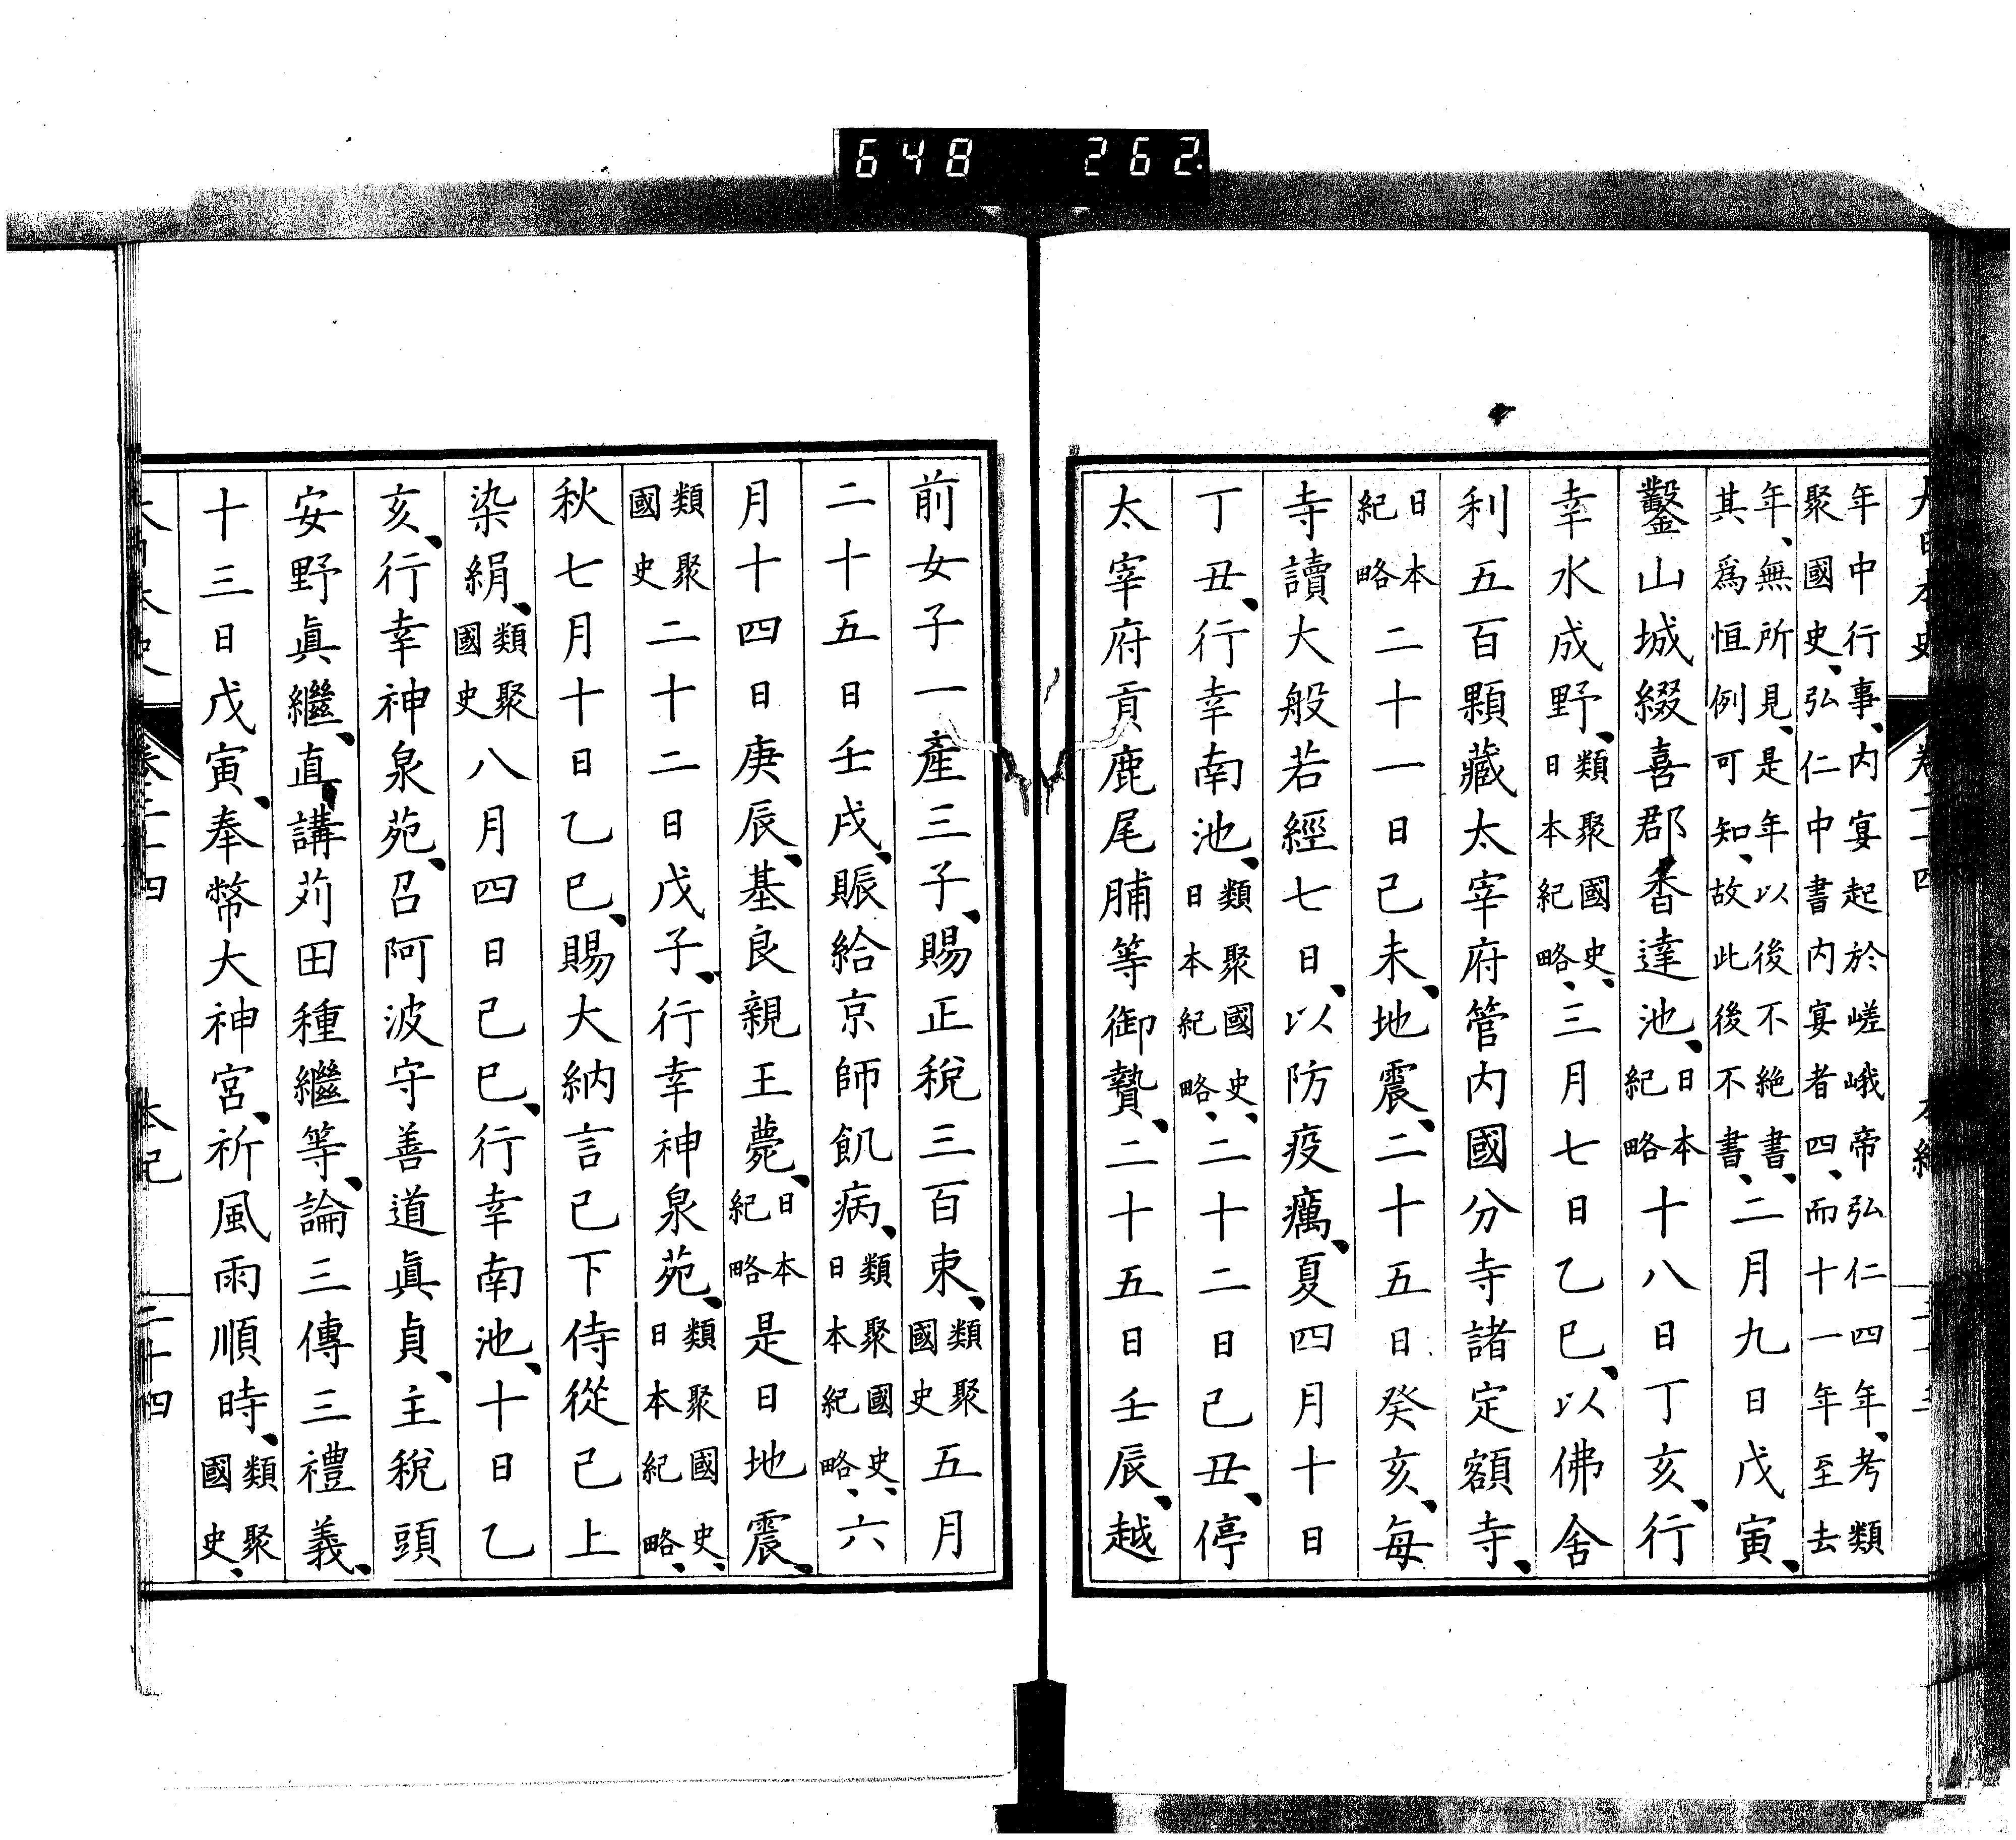 648 262
年中行事、內宴起於嵯峨帝弘仁四年、考類
聚國史、弘仁中書內宴者四、而十一年至去
年、無所見、是年以後不絕書、
其爲恒例可知、故此後不書、二月九日戊寅、
鑿山城綴喜郡香達池、日本紀略十八日丁亥、行
幸水成野、類聚國史、日本紀略、三月七日乙巳、以佛舍
利五百顆藏太宰府管內國分寺諸定額寺、
日本紀略二十一日己未、地震、二十五日癸亥、每
寺讀大般若經七日、以防疫癘、夏四月十日
丁丑、行幸南池、類聚國史、日本紀略、二十二日己丑、停
太宰府貢鹿尾脯等御贄、二十五日壬辰、越
前女子一產三子、賜正稅三百束、類聚國史五月
二十五日壬戌、賑給京師飢病、類聚國史、日本紀略、六
月十四日庚辰、基良親王薨、日本紀略是日地震、
類聚國史二十二日戊子、行幸神泉苑、類聚國史、日本紀略、
秋七月十日乙巳、賜大納言已下侍從已上
染絹、類聚國史八月四日己巳、行幸南池、十日乙
亥、行幸神泉苑、召阿波守善道眞貞、主稅頭
安野眞繼、直講苅田種繼等、論三傳三禮義、
十三日戊寅、奉幣大神宮、祈風雨順時、類聚國史、